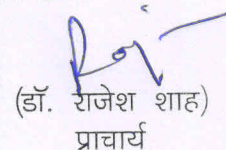 (डॉ. राजेश शाह)
प्राचार्य